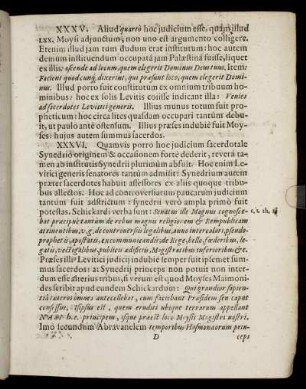 XXXV. Aliud quoque hoc judicium esse, quàm illud
LXX. Moysi adjunctum, non uno est argumento colligere.
Etenim illud jam tum dudum erat institutum: hoc autem
demum instituendum occupatâ jam Palæstinâ fuisse, liquet
ex illis: ascende ad locum, quem elegerit Dominus Deus tuus. Item:
Facient quodcunq; dixerint, qui præsunt loco, quem elegerit Domi-
nus. Illud porro fuit constitutum ex omnium tribuum ho-
minibus: hoc ex solis Levitis coïsse indicant illa: Venies
ad sacerdotes Levitici generis. Illius munus totum fuit pro-
pheticum: hoc circa lites quasdam occupari tantum debu-
it, ut paulo ante ostensum. Illius præses indubiè fuit Moy-
ses: hujus autem summus sacerdos.
XXXVI. Quamvis porro hoc judicium sacerdotale
Synedrio originem & occasionem forte dederit, reverà ta-
men ab institutis Synedrii plurimùm abfuit. Hoc enim Le-
vitici generis senatores tantùm admisit: Synedrium autem
præter sacerdotes habuit assessores ex aliis quoque tribubus
adlectos. Hoc ad controversiarum paucarum judicium
tantùm fuit adstrictum: synedrî verò ampla primò fuit
potestas. Schickardi verba sunt: Senatus ille Magnus cognosce-
bat præcipuè tantùm de rebus magnis religionem & Rempublicam
attinentibus, v. g. de controversiis legalibus, anno intercalari, pseudo-
prophetis, apostatis, excommunicandis; de Rege, bello, foederibus, le-
gatis, vectigalibus, publicis ædificiis, Magistratibus inferioribus &c.
Præses illius Levitici judicij indubiè semper fuit ipsemet sum-
mus sacerdos: at Synedrij princeps non potuit non inter-
dum esse alterius tribus, si verum est quod Moyses Maimoni-
des scribit apud eundem Schickardum: Qui grandior sapien-
tiâ cæteros omnes antecellebat, eum faciebant Præsidem seu caput
consessus,
Imo secundum Abravanelem temporibus Hasmonæorum prin-
D
ceps